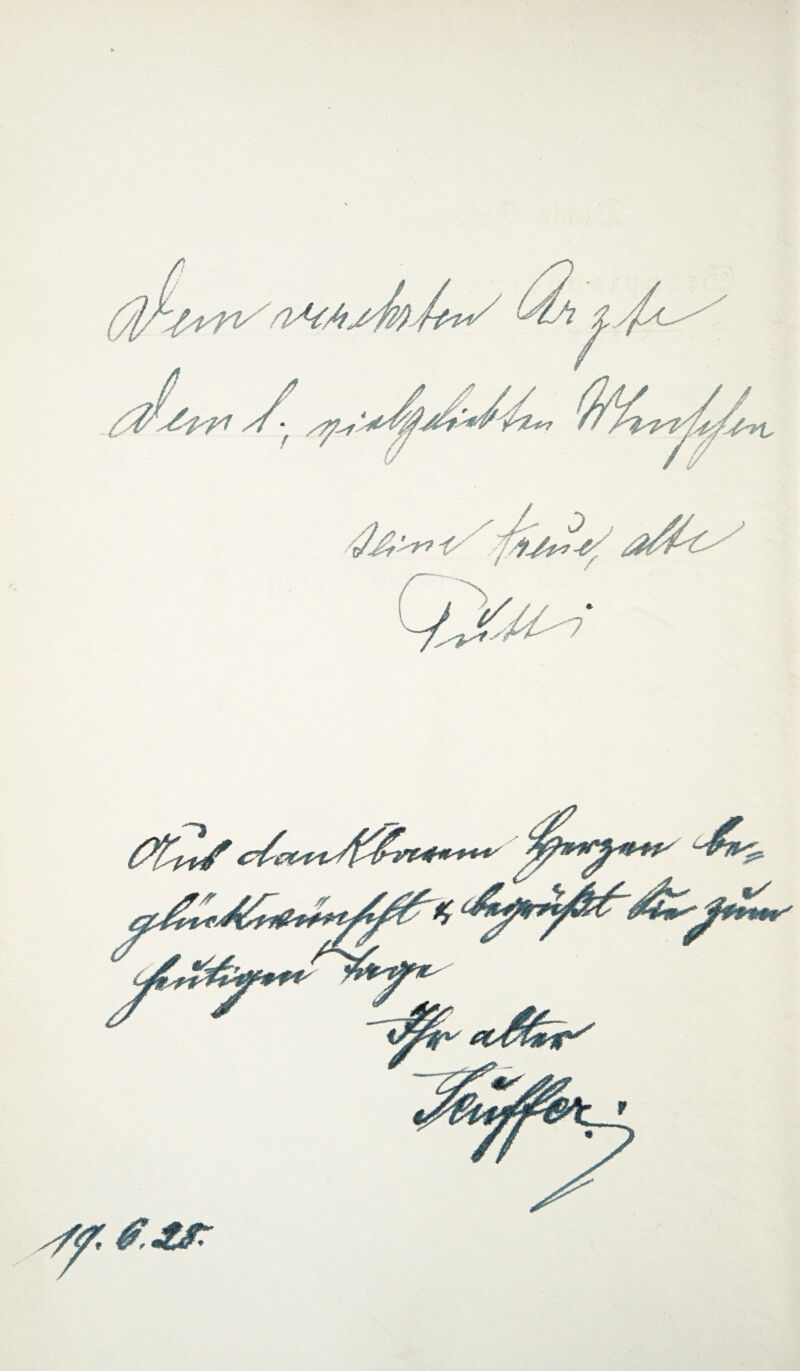 Dem verehrten Arzte
Dem l., vielgeliebten Menschen
seine treue, alte
Putti
Aus dankbarem Herzen be-
glückwünscht & begrüßt Sie zum
heutigen Tage
Ihr alter
19. 6. 25.